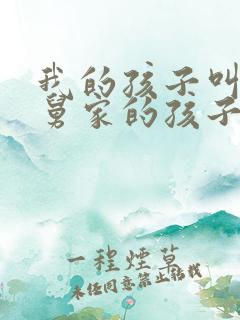 我的孩子叫
舅家的孩子
一程煙草
未经同意禁止转载